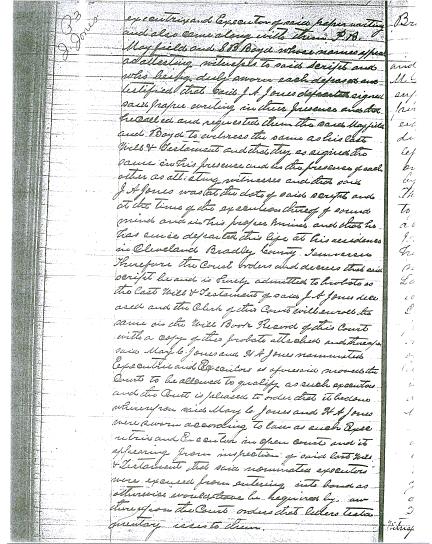 P3
J. Jones
executrix and Executor of said paper writing
and also came along with them P.B.
Mayfield and S B Boyd whose names appear
as attesting witnesses to said script and
who being duly sworn each deposed and
testified that said J A Jones deceased signed
said paper writing in their presence and that
he called and requested them the said Mayfield
and Boyd to witness the same as his last
Will & Testament and that they as signed the
same in his presence and in the presence of each
other as attesting witnesses and that said
J A Jones was at the date of said script and
at the time of the execution thereof of sound
mind and in his proper and that he
has since departed this life at his residence
in Cleveland Bradley County Tennessee
Therefore the Court orders and decrees that said
script be and is hereby admitted to probate as
the last Will & Testament of said J A Jones dece
ased and the Clerk of this Court will enroll the
same in the Will Book Record of this Court
with a copy of this probate attached and thereupon
said Mary L Jones and H A Jones nominated
Executrix and Executors as aforesaid moved the
Court to be allowed to qualify as such executors
and the Court is pleased to order that it be done
whereupon said Mary L Jones and H A Jones
were sworn according to law as such Exec
utrix and Executor in open court and it
appearing from inspection of said last Will
& Testament that said nominated executors
were excused from entering into bond as
otherwise would be required by law
thereupon the Court orders that letters testa
mentary issue to them.